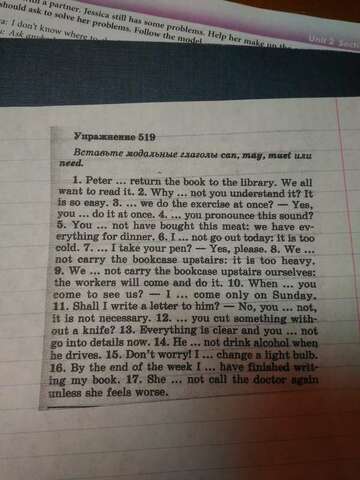 h a partner. Jessica still has some problems. Help her make up the
should ask to solve her problems. Follow the model.
I don't know where to
Unit 2
Упражнение 519
Вставьте модальные глаголы can, may, must или
need.
1. Peter ... return the book to the library. We all
want to read it. 2. Why ... not you understand it? It
is so easy. 3. ... we do the exercise at once? — Yes,
you ... do it at once. 4. ... you pronounce this sound?
5. You ... not have bought this meat: we have ev-
erything for dinner. 6. I ... not go out today: it is too
cold. 7. ... I take your pen? — Yes, please. 8. We ...
not carry the bookcase upstairs: it is too heavy.
9. We ... not carry the bookcase upstairs ourselves:
the workers will come and do it. 10. When ... you
come to see us? — I ... come only on Sunday.
11. Shall I write a letter to him? — No, you ... not,
it is not necessary. 12. ... you cut something with-
out a knife? 13. Everything is clear and you ... not
go into details now. 14. He ... not drink alcohol when
he drives. 15. Don't worry! I ... change a light bulb.
16. By the end of the week I ... have finished writ-
ing my book. 17. She ... not call the doctor again
unless she feels worse.